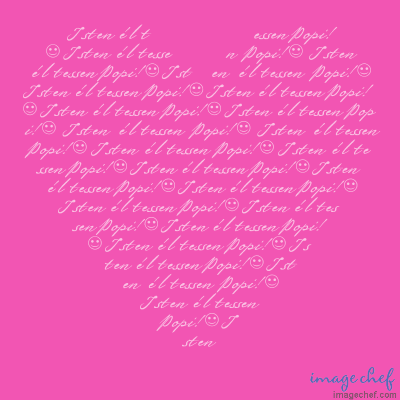 Isten él t essen Popi!
☺ Isten éltesse n Popi!☺ Isten
éltessen Popi!☺ Ist en éltessen Popi!☺
Isten éltessen Popi!☺ Isten éltessen Popi!
☺ Isten éltessen Popi!☺ Isten éltessen Pop
i!☺ Isten éltessen Popi!☺ Isten éltessen
Popi!☺ Isten éltessen Popi!☺ Isten élte
ssen Popi!☺ Isten éltessen Popi!☺ Isten
éltessen Popi!☺ Isten éltessen Popi!☺
Isten éltessen Popi!☺ Isten éltes
sen Popi!☺ Isten éltessen Popi!
☺ Isten éltessen Popi!☺ Is
ten éltessen Popi!☺ Ist
en éltessen Popi!☺
Isten éltessen
Popi!☺ I
sten
imagechef
imagechef.com